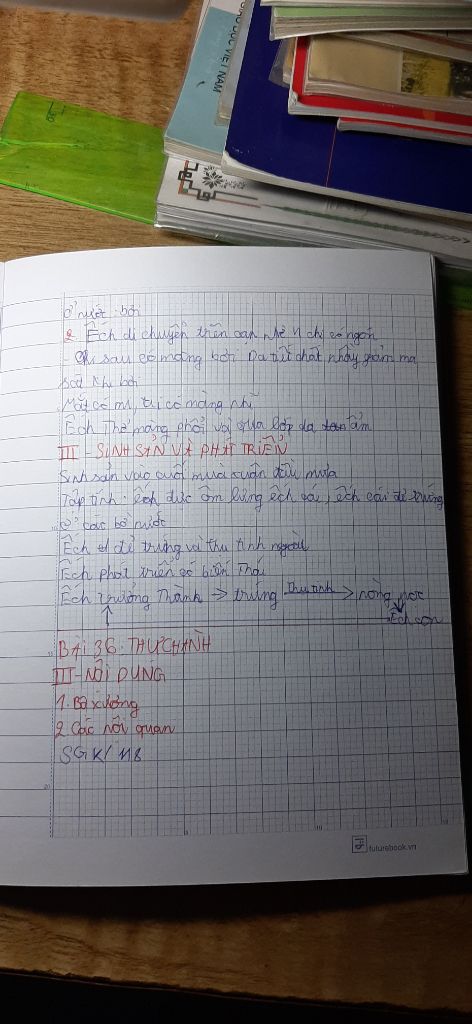 GIÁO DỤC VIỆT NAM
20
Ở nước: bơi
2. Ếch di chuyển trên cạn nhờ vị chi có ngón
- Chi sau có màng bơi Da tiết chất nhầy giảm ma
sát khi bơi
Mắt có mi, tai có màng nhĩ
Ếch Thở bằng phổi và qua lớp da ẩm
III - SINH SẢN VÀ PHÁT TRIỂN
Sinh sản vào cuối mùa xuân đầu mưa
Tập tính: ếch đực ôm lưng ếch cái, ếch cái đẻ trứng
ở các bờ nước
Ếch đẻ trứng và thụ tinh ngoài
Ếch phát triển có biến Thái
Ếch trưởng Thành → trứng thụ tinh → nòng nọc
Ếch con
BÀI 36: THỰC HÀNH
III - NỘI DUNG
1. Bộ xương
2 Các nội quan
SGK/118
futurebook.vn